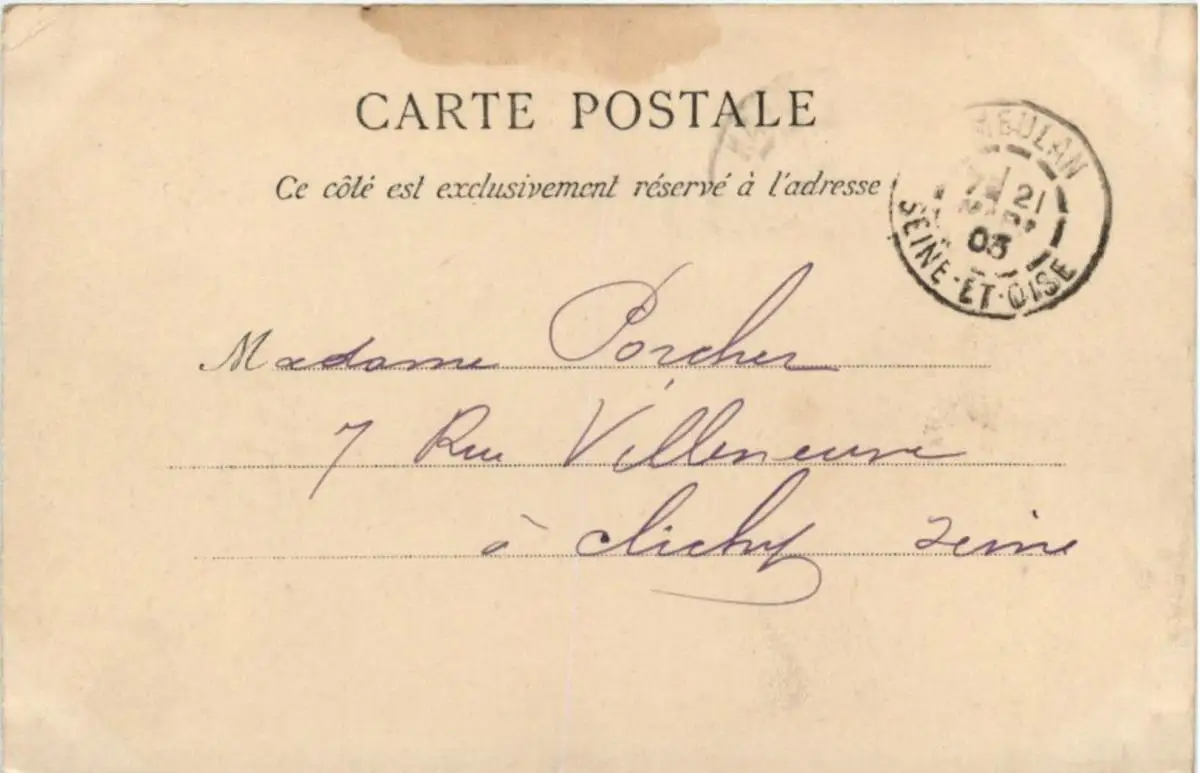 CARTE POSTALE
Ce côté est exclusivement réservé à l'adresse
MEULAN
21
MARS
03
SEINE-ET-OISE
Madame Porcher
7 Rue Villeneuve
à Clichy Seine